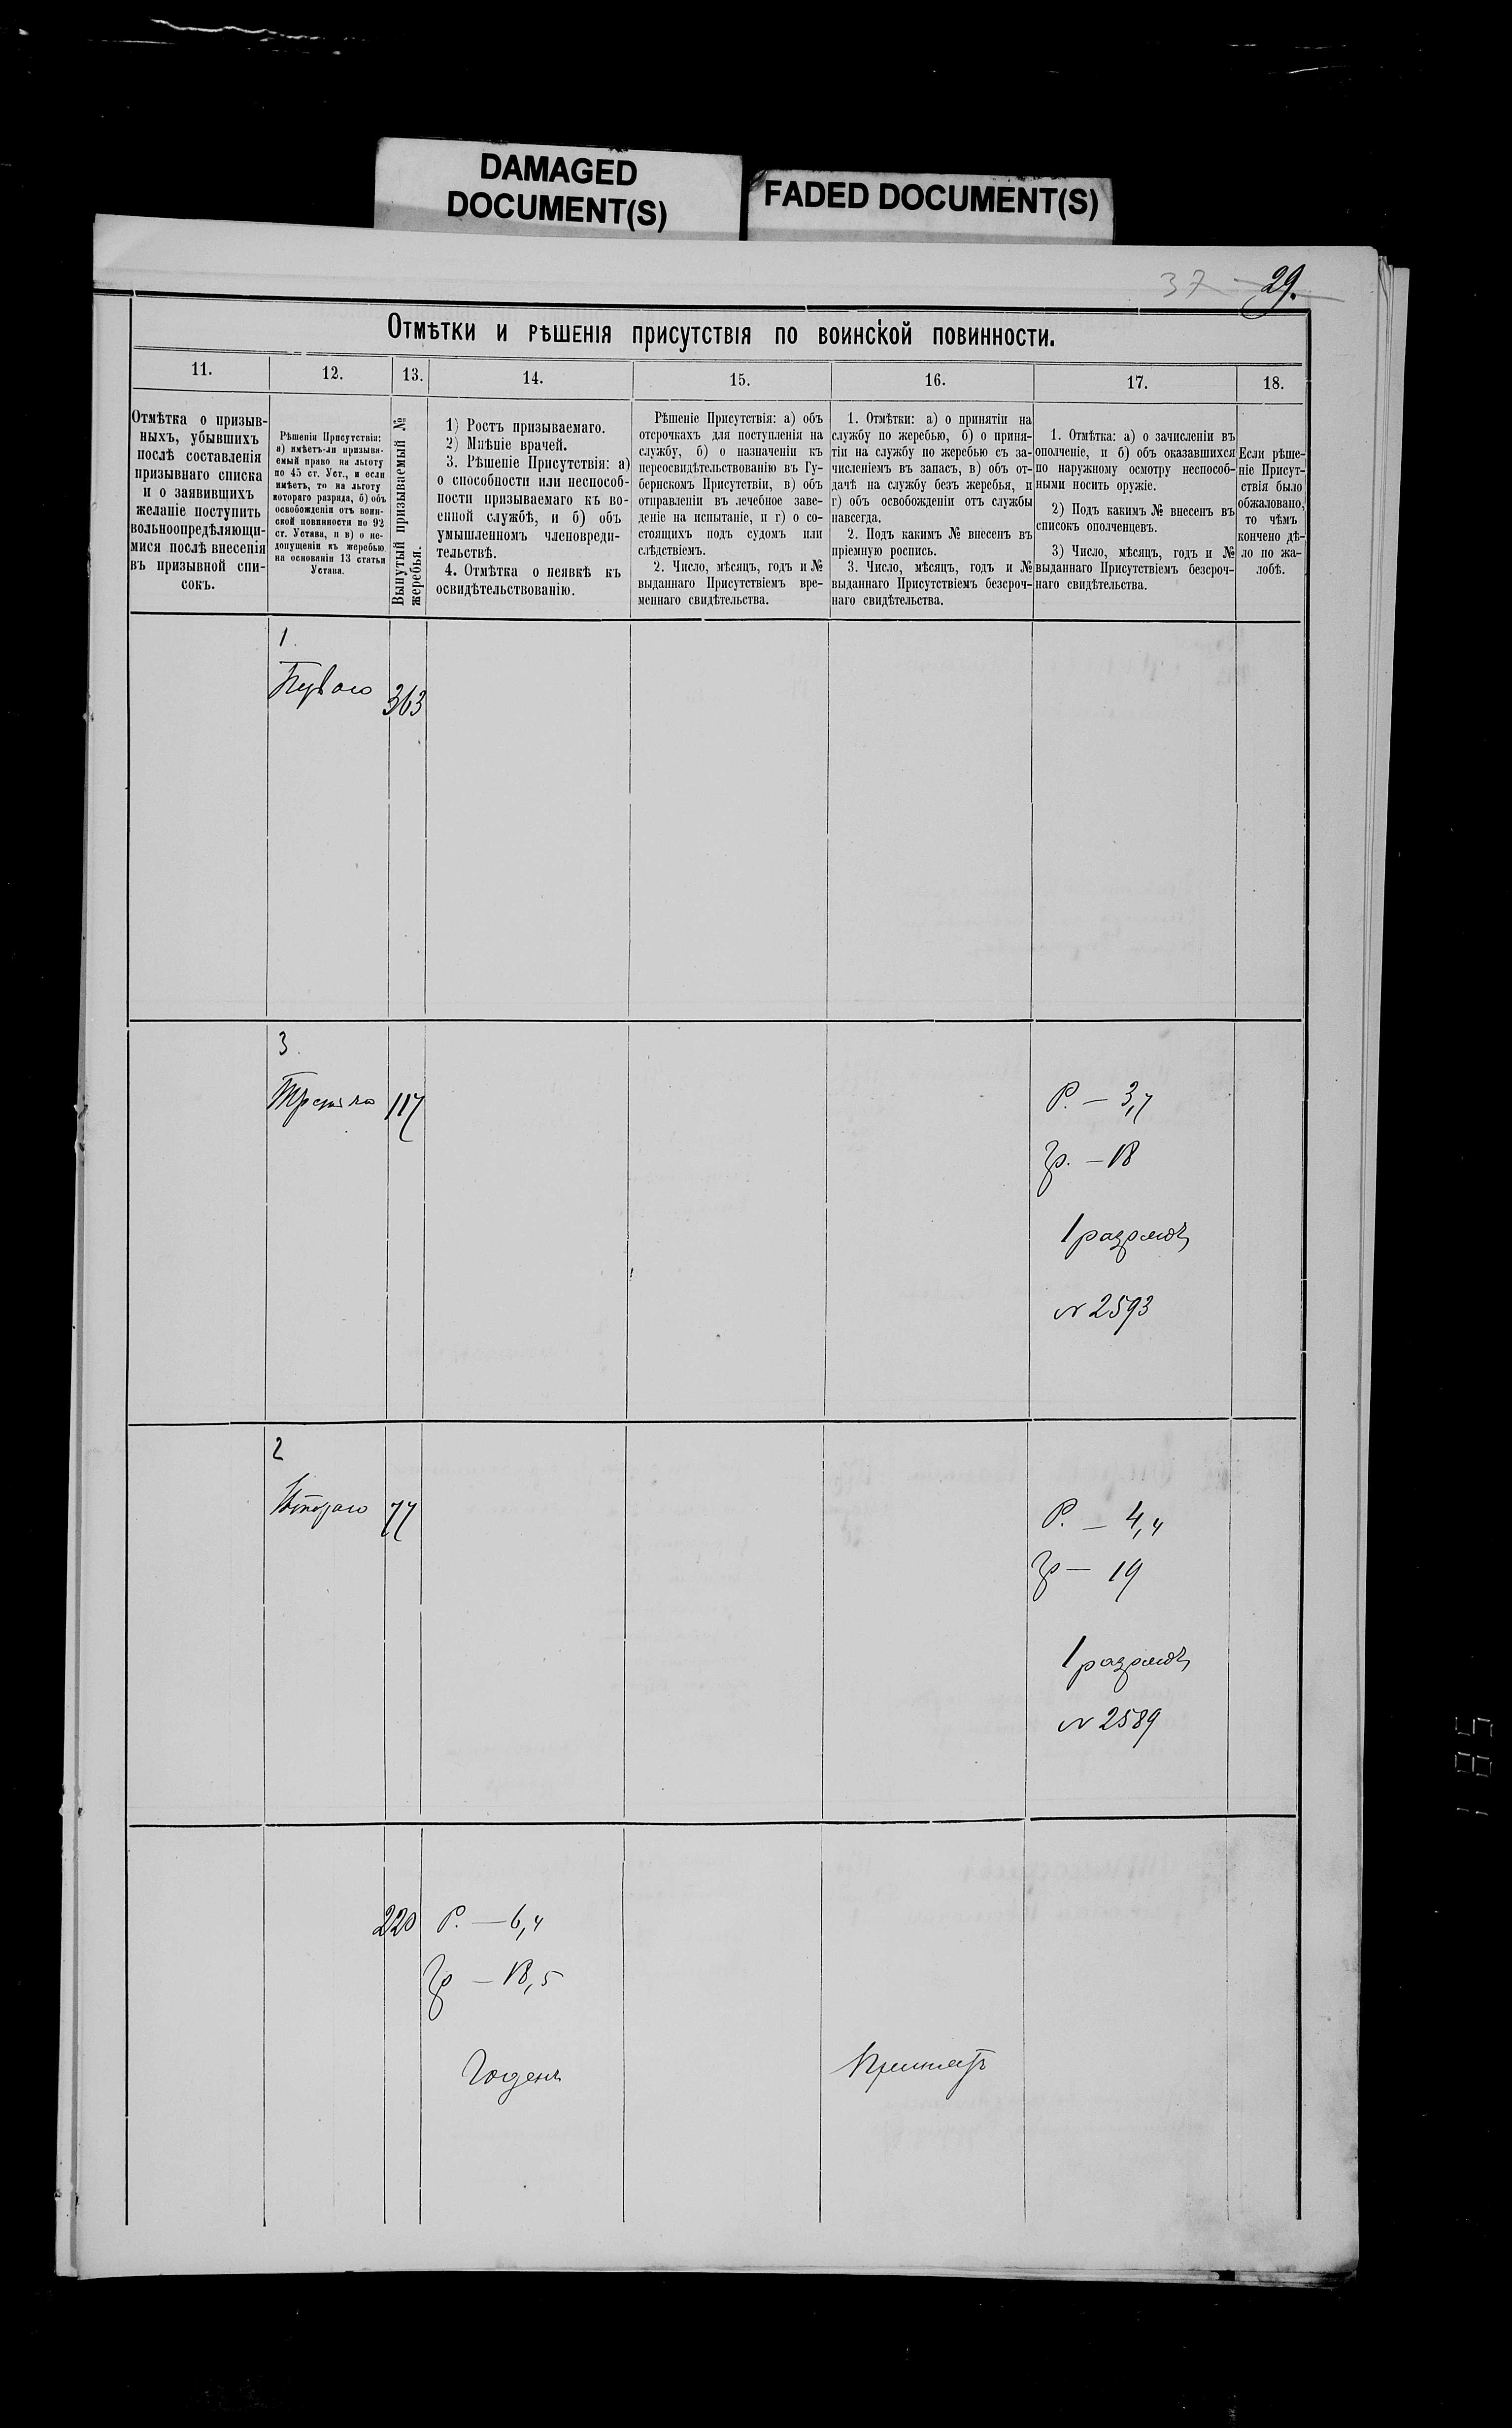 DAMAGED
DOCUMENT(S)
FADED DOCUMENT(S)
37
29.
Отмѣтки и рѣшенія присутствія по воинской повинности.
11.
12.
13.
14.
15.
16.
17.
18.
Отмѣтка о призыв-
ныхъ, убывшихъ
послѣ составленія
призывнаго списка
и о заявившихъ
желаніе поступить
вольноопредѣляющи-
мися послѣ внесенія
въ призывной спи-
сокъ.
Рѣшенія Присутствія:
а) имѣетъ-ли призыва-
емый право на льготу
по 45 ст. Уст., и если
имѣетъ, то на льготу
котораго разряда, б) объ
освобожденіи отъ воин-
ской повинности по 92
ст. Устава, и в) о не-
допущеніи къ жеребью
на основаніи 13 статьи
Устава.
Вынутый призываемый №
жеребья.
1) Ростъ призываемаго.
2) Мнѣніе врачей.
3. Рѣшеніе Присутствія: а)
о способности или неспособ-
ности призываемаго къ во-
енной службѣ, и б) объ
умышленномъ членовреди-
тельствѣ.
4. Отмѣтка о неявкѣ къ
освидѣтельствованію.
Рѣшеніе Присутствія: а) объ
отсрочкахъ для поступленія на
службу, б) о назначеніи къ
переосвидѣтельствованію въ Гу-
бернскомъ Присутствіи, в) объ
отправленіи въ лечебное заве-
деніе на испытаніе, и г) о со-
стоящихъ подъ судомъ или
слѣдствіемъ.
2. Число, мѣсяцъ, годъ и №
выданнаго Присутствіемъ вре-
меннаго свидѣтельства.
1. Отмѣтки: а) о принятіи на
службу по жеребью, б) о приня-
тіи на службу по жеребью съ за-
численіемъ въ запасъ, в) объ от-
дачѣ на службу безъ жеребья, и
г) объ освобожденіи отъ службы
навсегда.
2. Подъ какимъ № внесенъ въ
пріемную роспись.
3. Число, мѣсяцъ, годъ и №
выданнаго Присутствіемъ безсроч-
наго свидѣтельства.
1. Отмѣтка: а) о зачисленіи въ
ополченіе, и б) объ оказавшихся
по наружному осмотру неспособ-
ными носить оружіе.
2) Подъ какимъ № внесенъ въ
списокъ ополченцевъ.
3) Число, мѣсяцъ, годъ и №
выданнаго Присутствіемъ безсроч-
наго свидѣтельства.
Если рѣше-
ніе Присут-
ствія было
обжаловано,
то чѣмъ
кончено дѣ-
ло по жа-
лобѣ.
1.
Перваго 363
3.
Третьяго 117
Р. — 3,7
Гр. — 18
1 разрядъ
№ 2593
2
Втораго 77
Р. — 4,4
Гр — 19
1 разрядъ
№ 2589
220 Р. — 6,4
Гр — 18,5
Годенъ
Принятъ
185